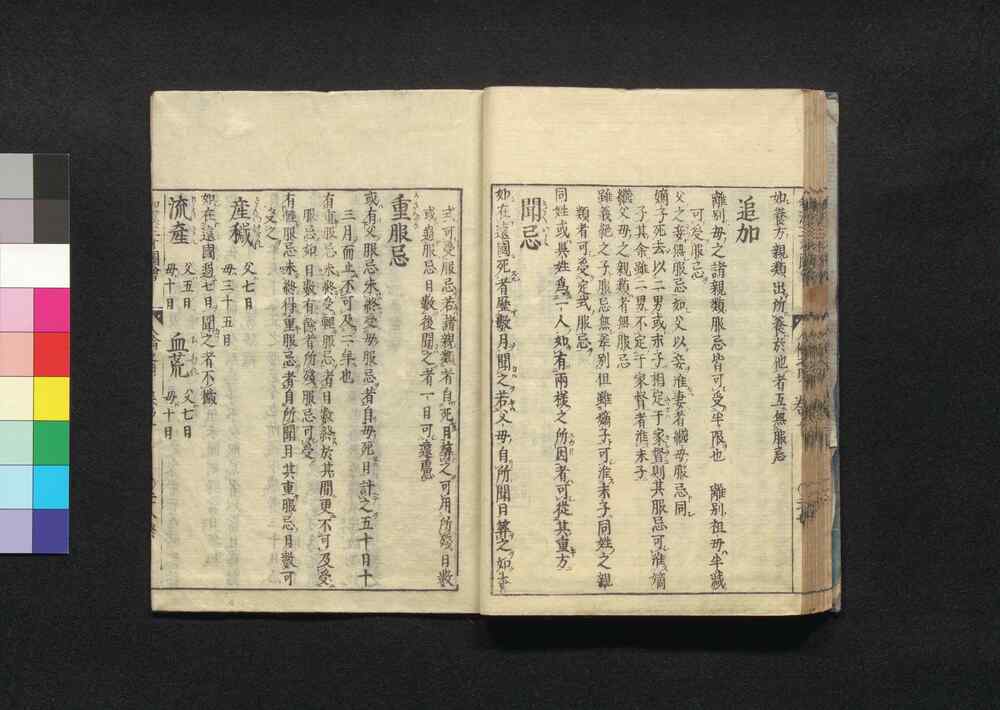 如養方親類出所養於他者互無服忌
追加
離別毋之諸親類服忌皆可受半限也　離別祖毋半減
可受服忌
父之妾無服忌如父以妾准妻者繼毋服忌同
嫡子死去以二男或末子相定于家督則其服忌可准嫡
子其余雖二男不定于家督者准末子
繼父毋之親類者無服忌
雖義絶之子服忌無差別但雖嫡子可准末子同姓之親
類者可受定式服忌
同姓或異姓爲一人如有兩樣之所因者可從其重方
聞忌
如在遠國死者歷數月聞之若父毋自所聞日算之如
式可受服忌若諸親類者自死月算之可用所殘日數
或過服忌日數後聞之者一日可遠慮
重服忌
或有父服忌未終受毋服忌者自毋死日計之五十日十
三月而止不可及二年也
有重服忌未終受輕服忌者日數終於其間更不可及受
服忌如日數有餘者所殘服忌可受
有輕服忌未終得重服忌者自所聞日其重服忌月數可
受之
産穢　父七日
毋三十五日
如在遠國過七日聞之者不穢
流産　父五日　血荒　父七日
毋十日　毋十日